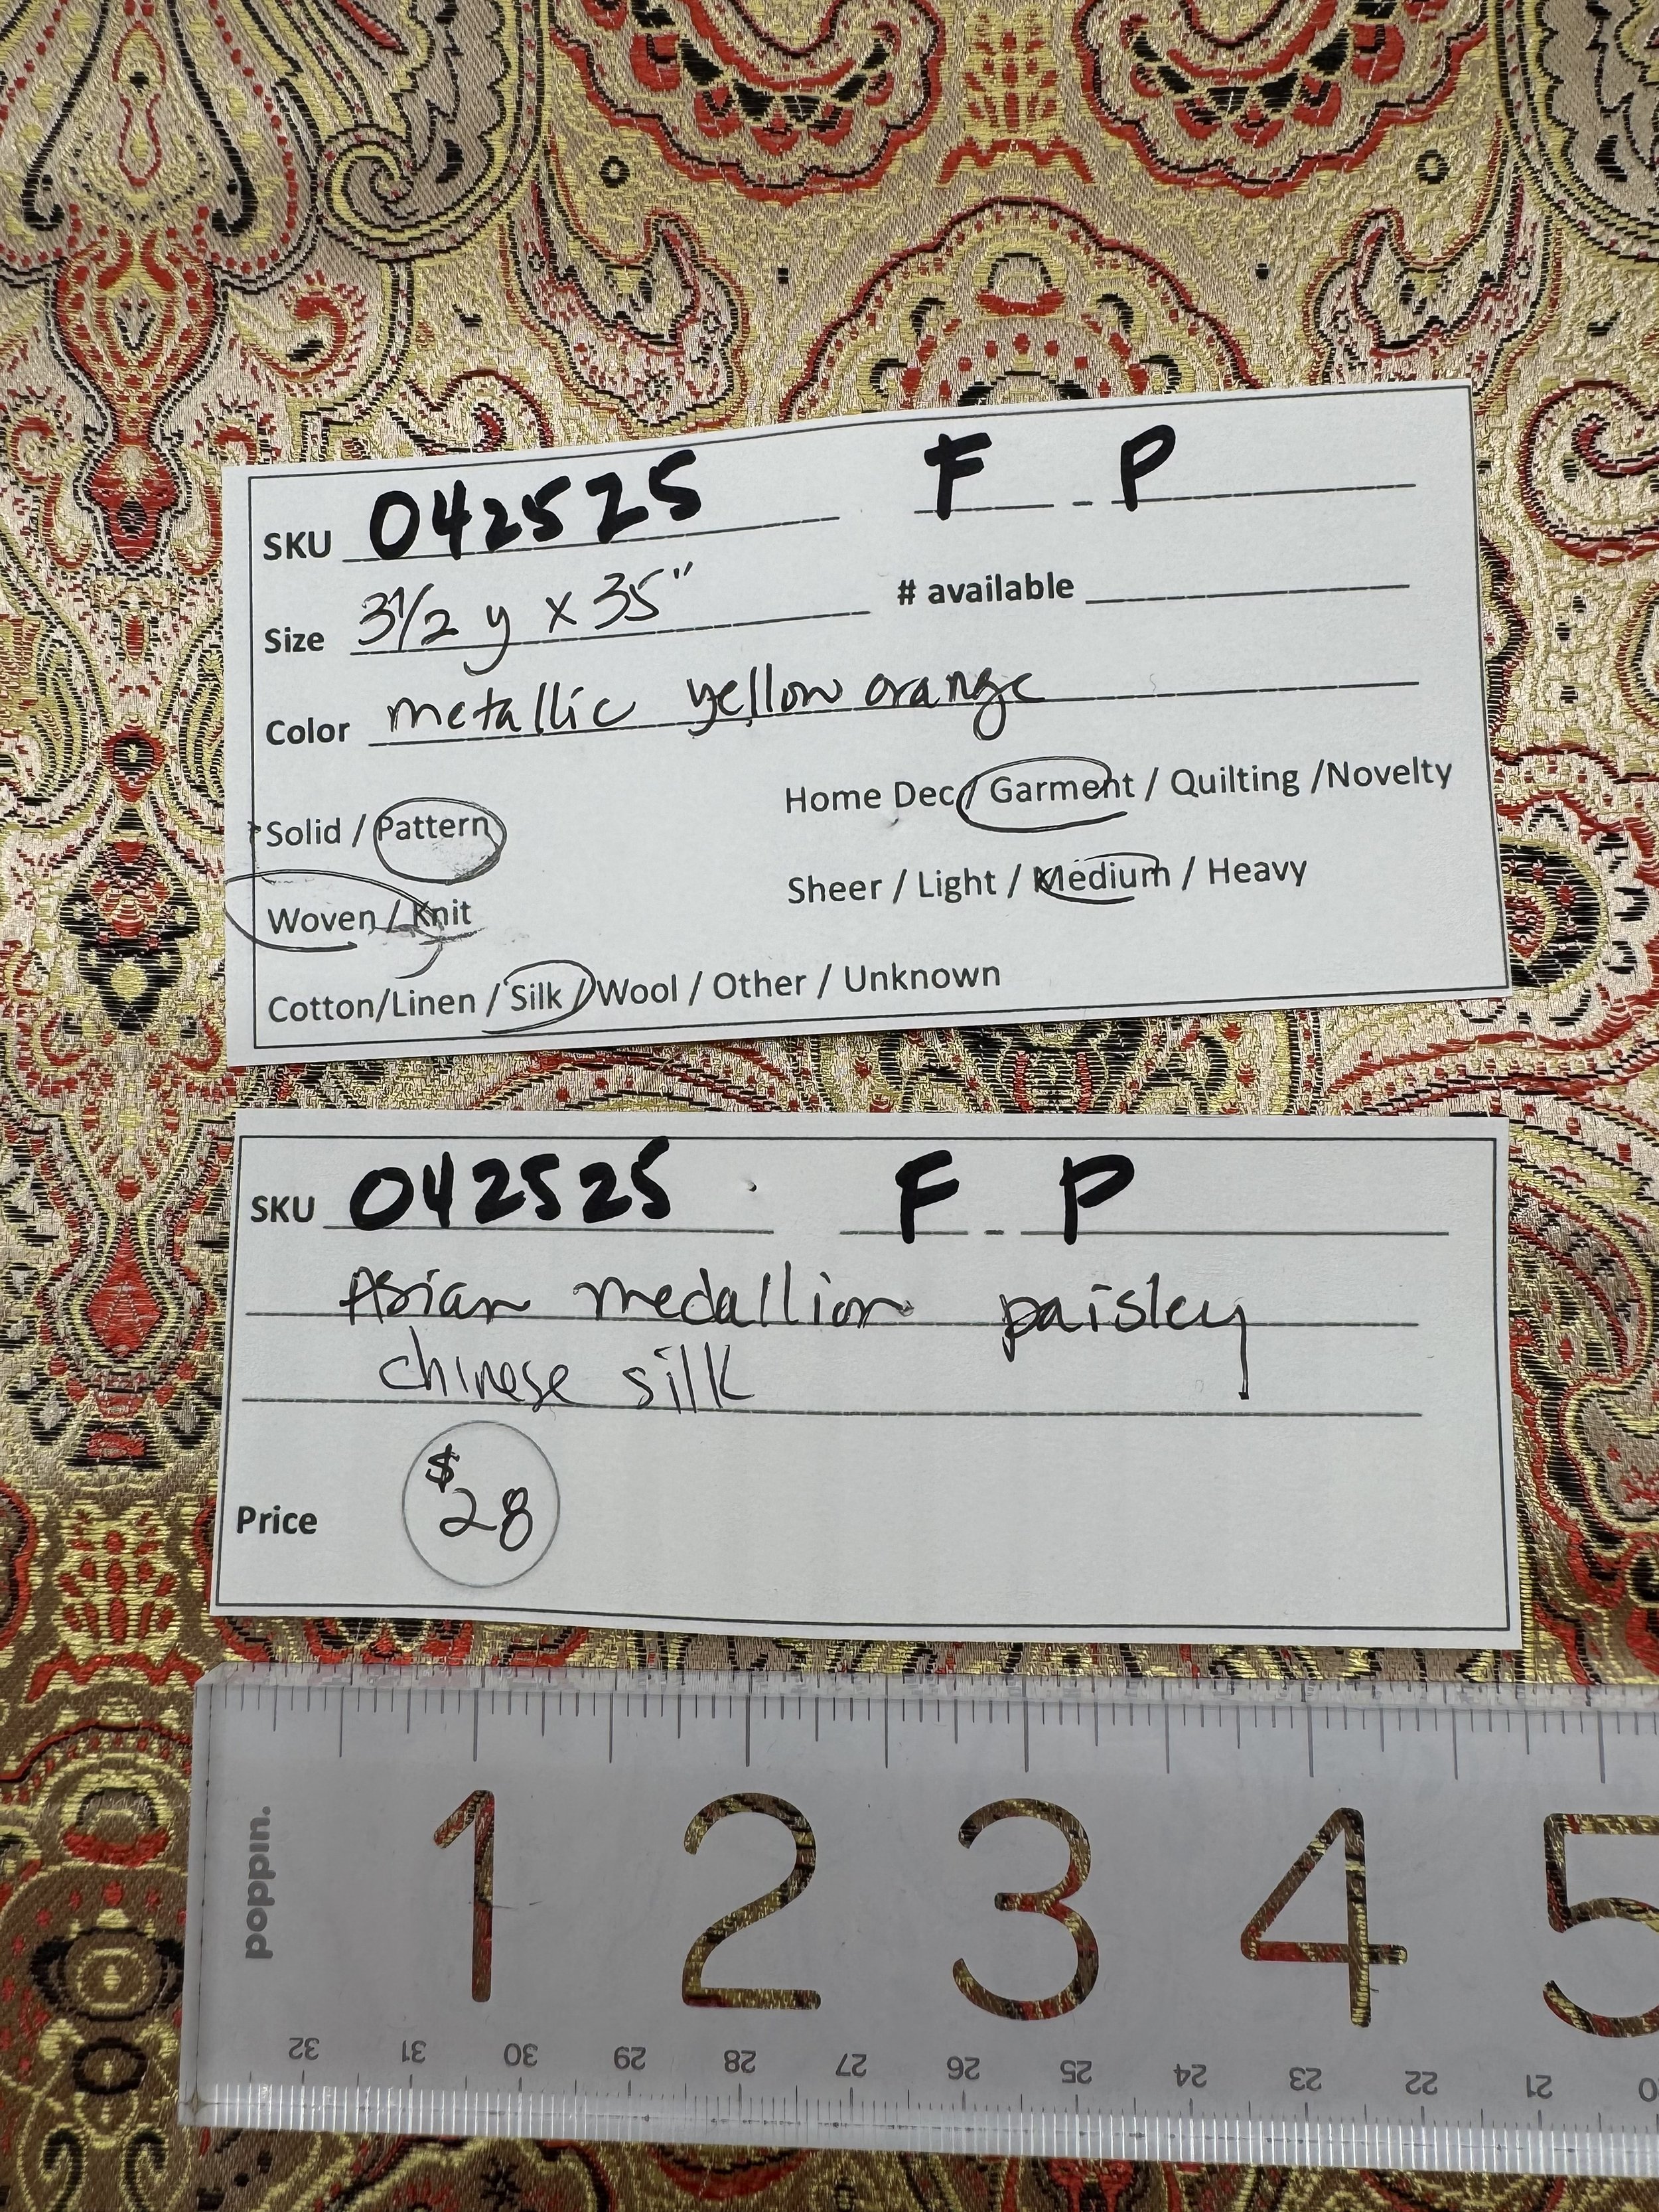 SKU 042525 F - P
Size 3 1/2 y x 35" # available
Color metallic yellow orange
Solid / Pattern Home Dec / Garment / Quilting /Novelty
Woven / Knit Sheer / Light / Medium / Heavy
Cotton/Linen / Silk / Wool / Other / Unknown
SKU 042525 F - P
Asian medallion paisley
chinese silk
Price $28
poppin.
1 2 3 4 5
32 31 30 29 28 27 26 25 24 23 22 21